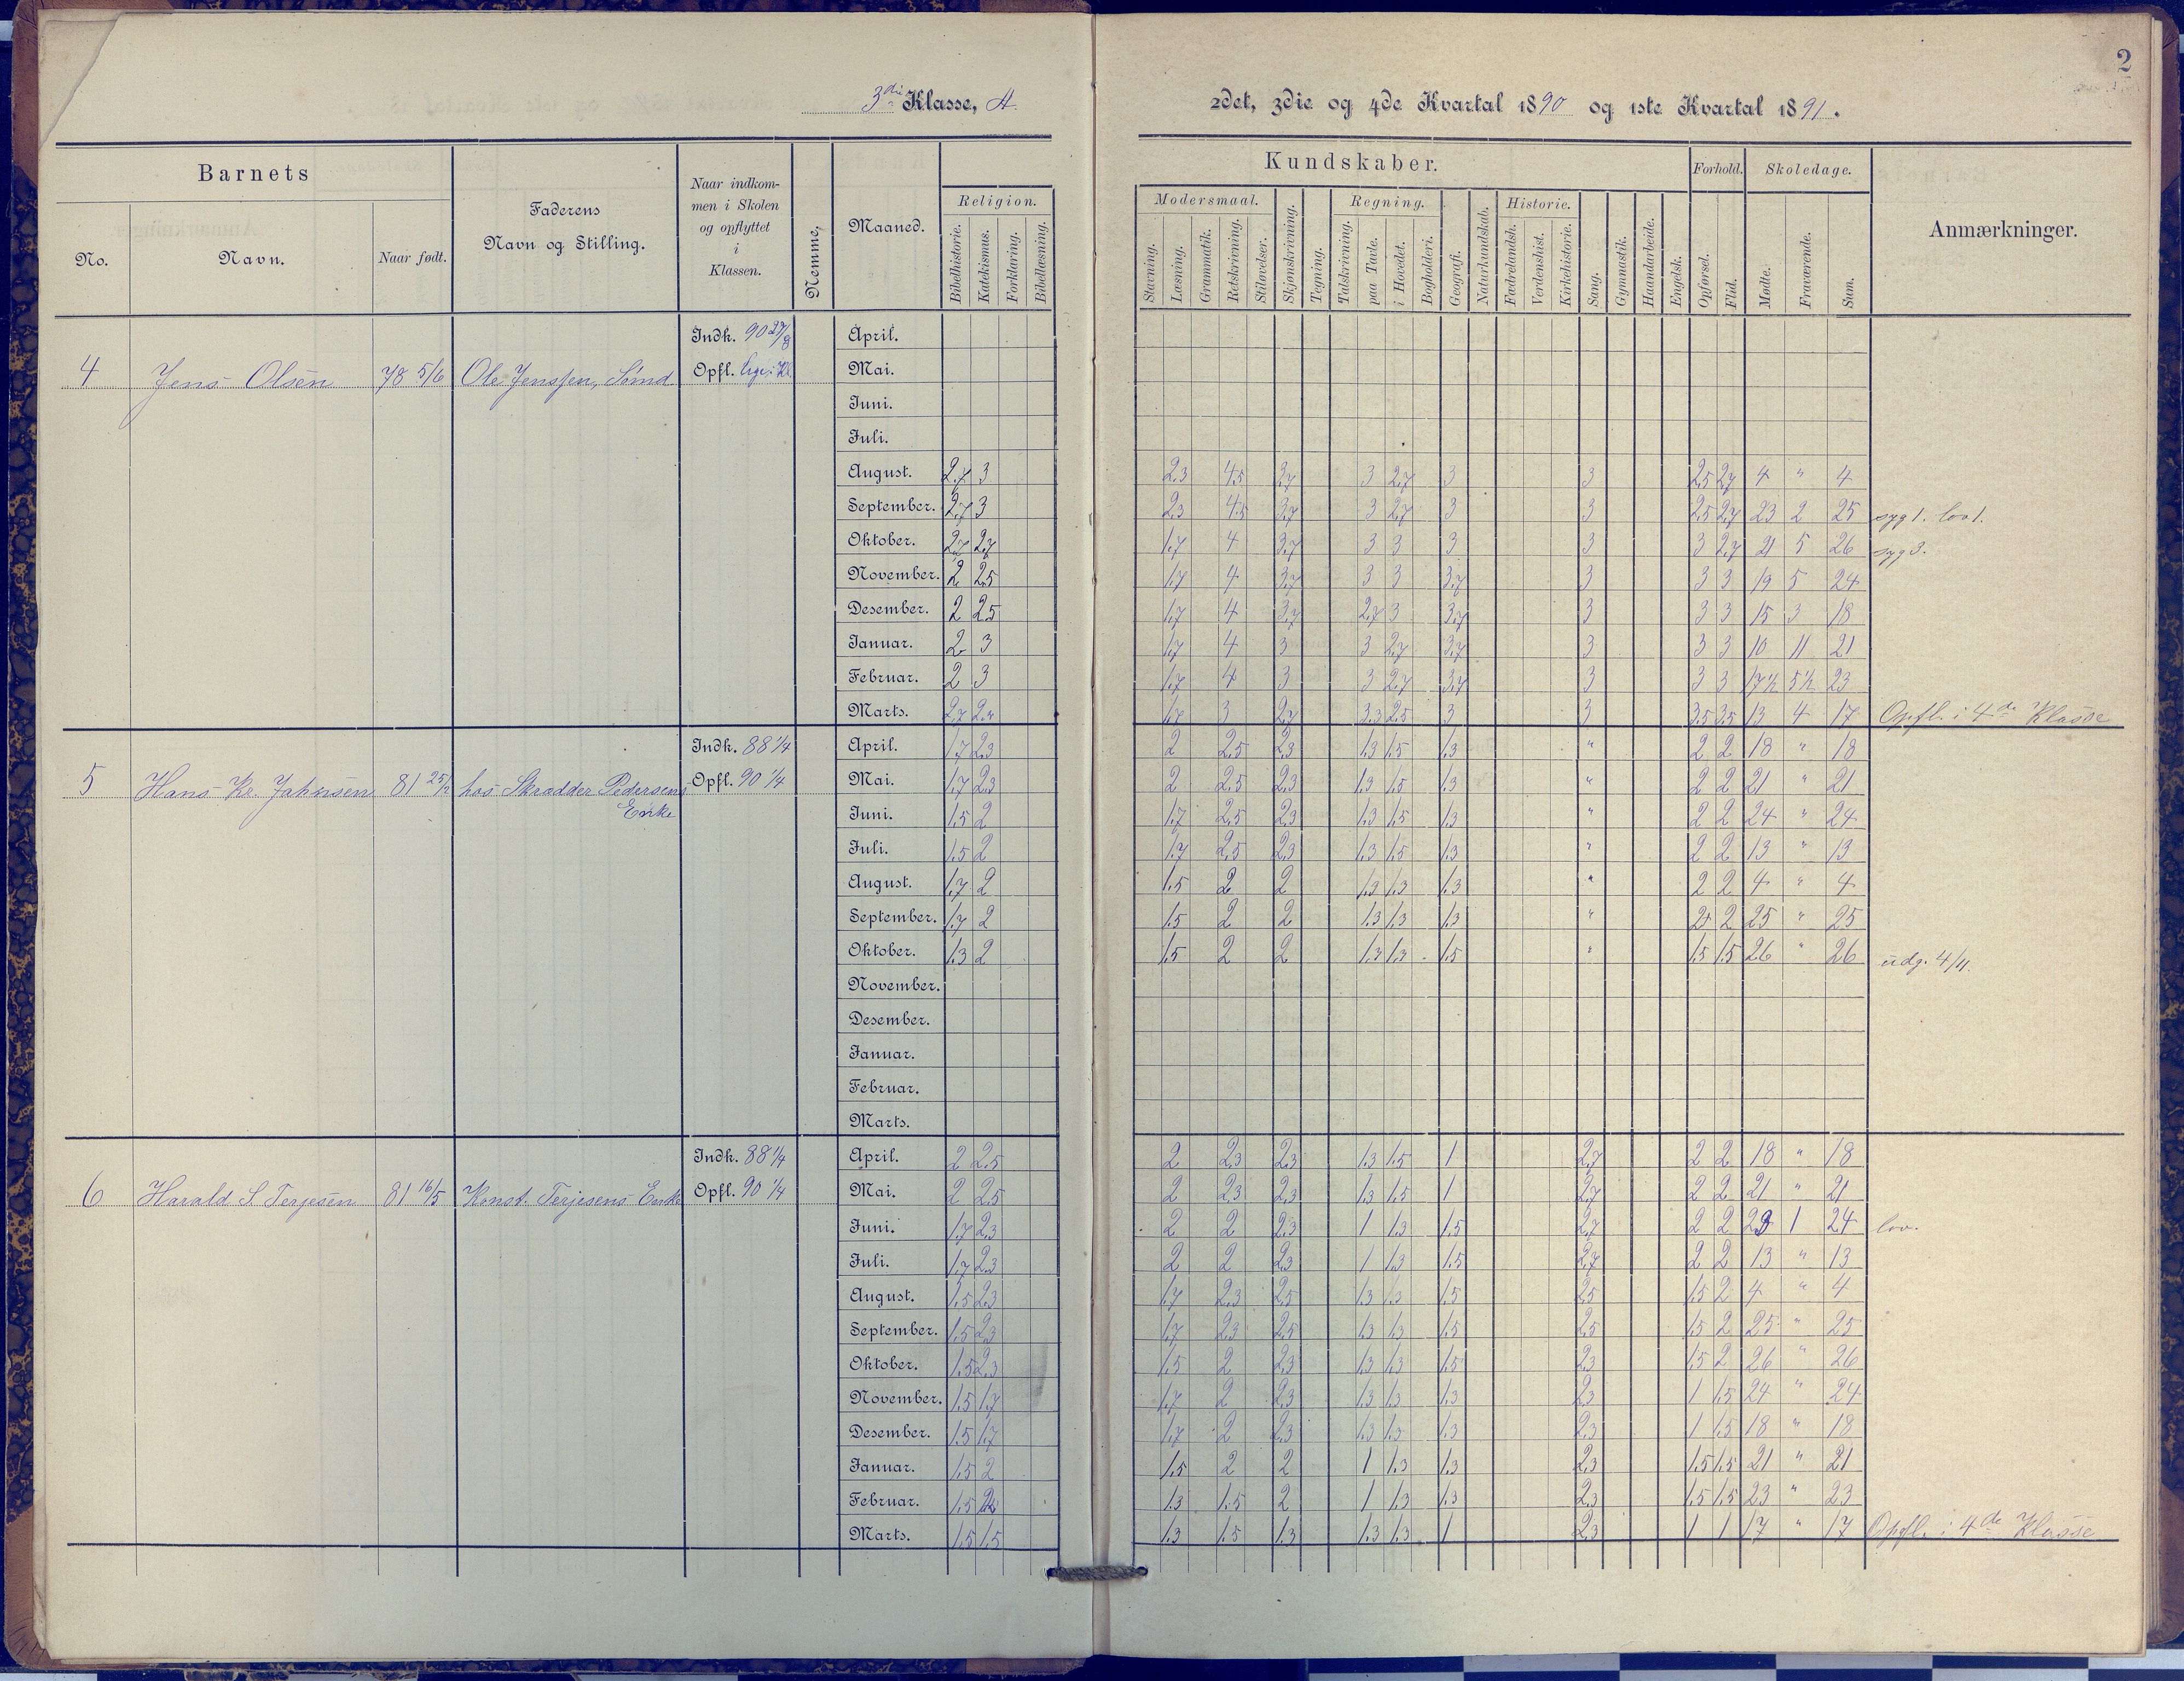 2
3die Klasse, A.
2det, 3die og 4de Kvartal 1890 og 1ste Kvartal 1891.
Barnets
No.
Navn.
Naar født.
Faderens
Navn og Stilling.
Naar indkom-
men i Skolen
og opflyttet
i
Klassen.
Nemme,
Maaned.
Kundskaber.
Religion.
Bibelhistorie. Katekismus. Forklaring. Bibellæsning.
Modersmaal.
Stavning. Læsning. Grammatik. Retskrivning. Stiløvelser.
Skjønskrivning. Tegning.
Regning.
Talskrivning. paa Tavle. i Hovedet. Bogholderi.
Geografi. Naturkundskab.
Historie.
Fædrelandsh. Verdenshist. Kirkehistorie.
Sang. Gymnastik. Haandarbeide. Engelsk.
Forhold.
Opførsel. Flid.
Skoledage.
Mødte. Fraværende. Sum.
Anmærkninger.
Indk. 90 27/8 April.
4 Jens Olsen 78 5/6 Ole Jenssen, Sømd Opfl. Mai.
Juni.
Juli.
August. 2,7 3 2,3 4,5 3,7 3 2,7 3 3 2,5 2,7 4 " 4
September. 2,7 3 2,3 4,5 3,7 3 2,7 3 3 2,5 2,7 23 2 25 syg 1. lov 1.
Oktober. 2,7 2,7 1,7 4 3,7 3 3 3 3 3 2,7 21 5 26 syg 3.
November. 2 2,5 1,7 4 3,7 3 3 3,7 3 3 3 19 5 24
Desember. 2 2,5 1,7 4 3,7 2,7 3 3,7 3 3 3 15 3 18
Januar. 2 3 1,7 4 3 3 2,7 3,7 3 3 3 10 11 21
Februar. 2 3 1,7 4 3 3 2,7 3,7 3 3 3 17½ 5½ 23
Marts. 2,7 1,7 3 2,7 3,3 2,5 3 3 3,5 3,5 13 4 17 Opfl. i 4de Klasse
Indk. 88 1/4 April. 1,7 2,3 2 2,5 2,3 1,3 1,5 1,3 " 2 2 18 " 18
5 Hans Kr. Jahnsen 81 25/2 hos Skrædder Pedersens Opfl. 90 1/4 Mai. 1,7 2,3 2 2,5 2,3 1,3 1,5 1,3 " 2 2 21 " 21
Enke Juni. 1,5 2 1,7 2,5 2,3 1,3 1,5 1,3 " 2 2 24 " 24
Juli. 1,5 2 1,7 2,5 2,3 1,3 1,5 1,3 " 2 2 13 " 13
August. 1,7 2 1,5 2 2 1,3 1,3 1,3 " 2 2 4 " 4
September. 1,7 2 1,5 2 2 1,3 1,3 1,3 " 2 2 25 " 25
Oktober. 1,3 2 1,5 2 2 1,3 1,3 1,5 " 1,5 1,5 26 " 26 udg. 4/11.
November.
Desember.
Januar.
Februar.
Marts.
Indk. 88 1/4 April. 2 2,5 2 2,3 2,3 1,3 1,5 1 2,7 2 2 18 " 18
6 Harald S Terjesen 81 16/5 Konst. Terjesens Enke Opfl. 90 1/4 Mai. 2 2,5 2 2,3 2,3 1,3 1,5 1 2,7 2 2 21 " 21
Juni. 1,7 2,3 2 2 2,3 1 1,3 1,5 2,7 2 2 23 1 24 lov.
Juli. 1,7 2,3 2 2 2,3 1 1,3 1,5 2,7 2 2 13 " 13
August. 1,5 2,3 1,7 2,3 2,5 1,3 1,3 1,5 2,5 1,5 2 4 " 4
September. 1,5 2,3 1,7 2,3 2,5 1,3 1,3 1,5 2,5 1,5 2 25 " 25
Oktober. 1,5 2,3 1,5 2 2,3 1,3 1,3 1,5 2,3 1,5 2 26 " 26
November. 1,5 1,7 1,7 2 2,3 1,3 1,3 1,3 2,3 1 1,5 24 " 24
Desember. 1,5 1,7 1,7 2 2,3 1,3 1,3 1,3 2,3 1 1,5 18 " 18
Januar. 1,5 2 1,5 2 2 1 1,3 1,3 2,3 1,5 1,5 21 " 21
Februar. 1,5 2 1,3 1,5 2 1 1,3 1,3 2,3 1,5 1,5 23 " 23
Marts. 1,5 1,5 1,3 1,5 1,3 1,3 1,3 1 2,3 1 1 17 " 17 Opfl. i 4de Klasse